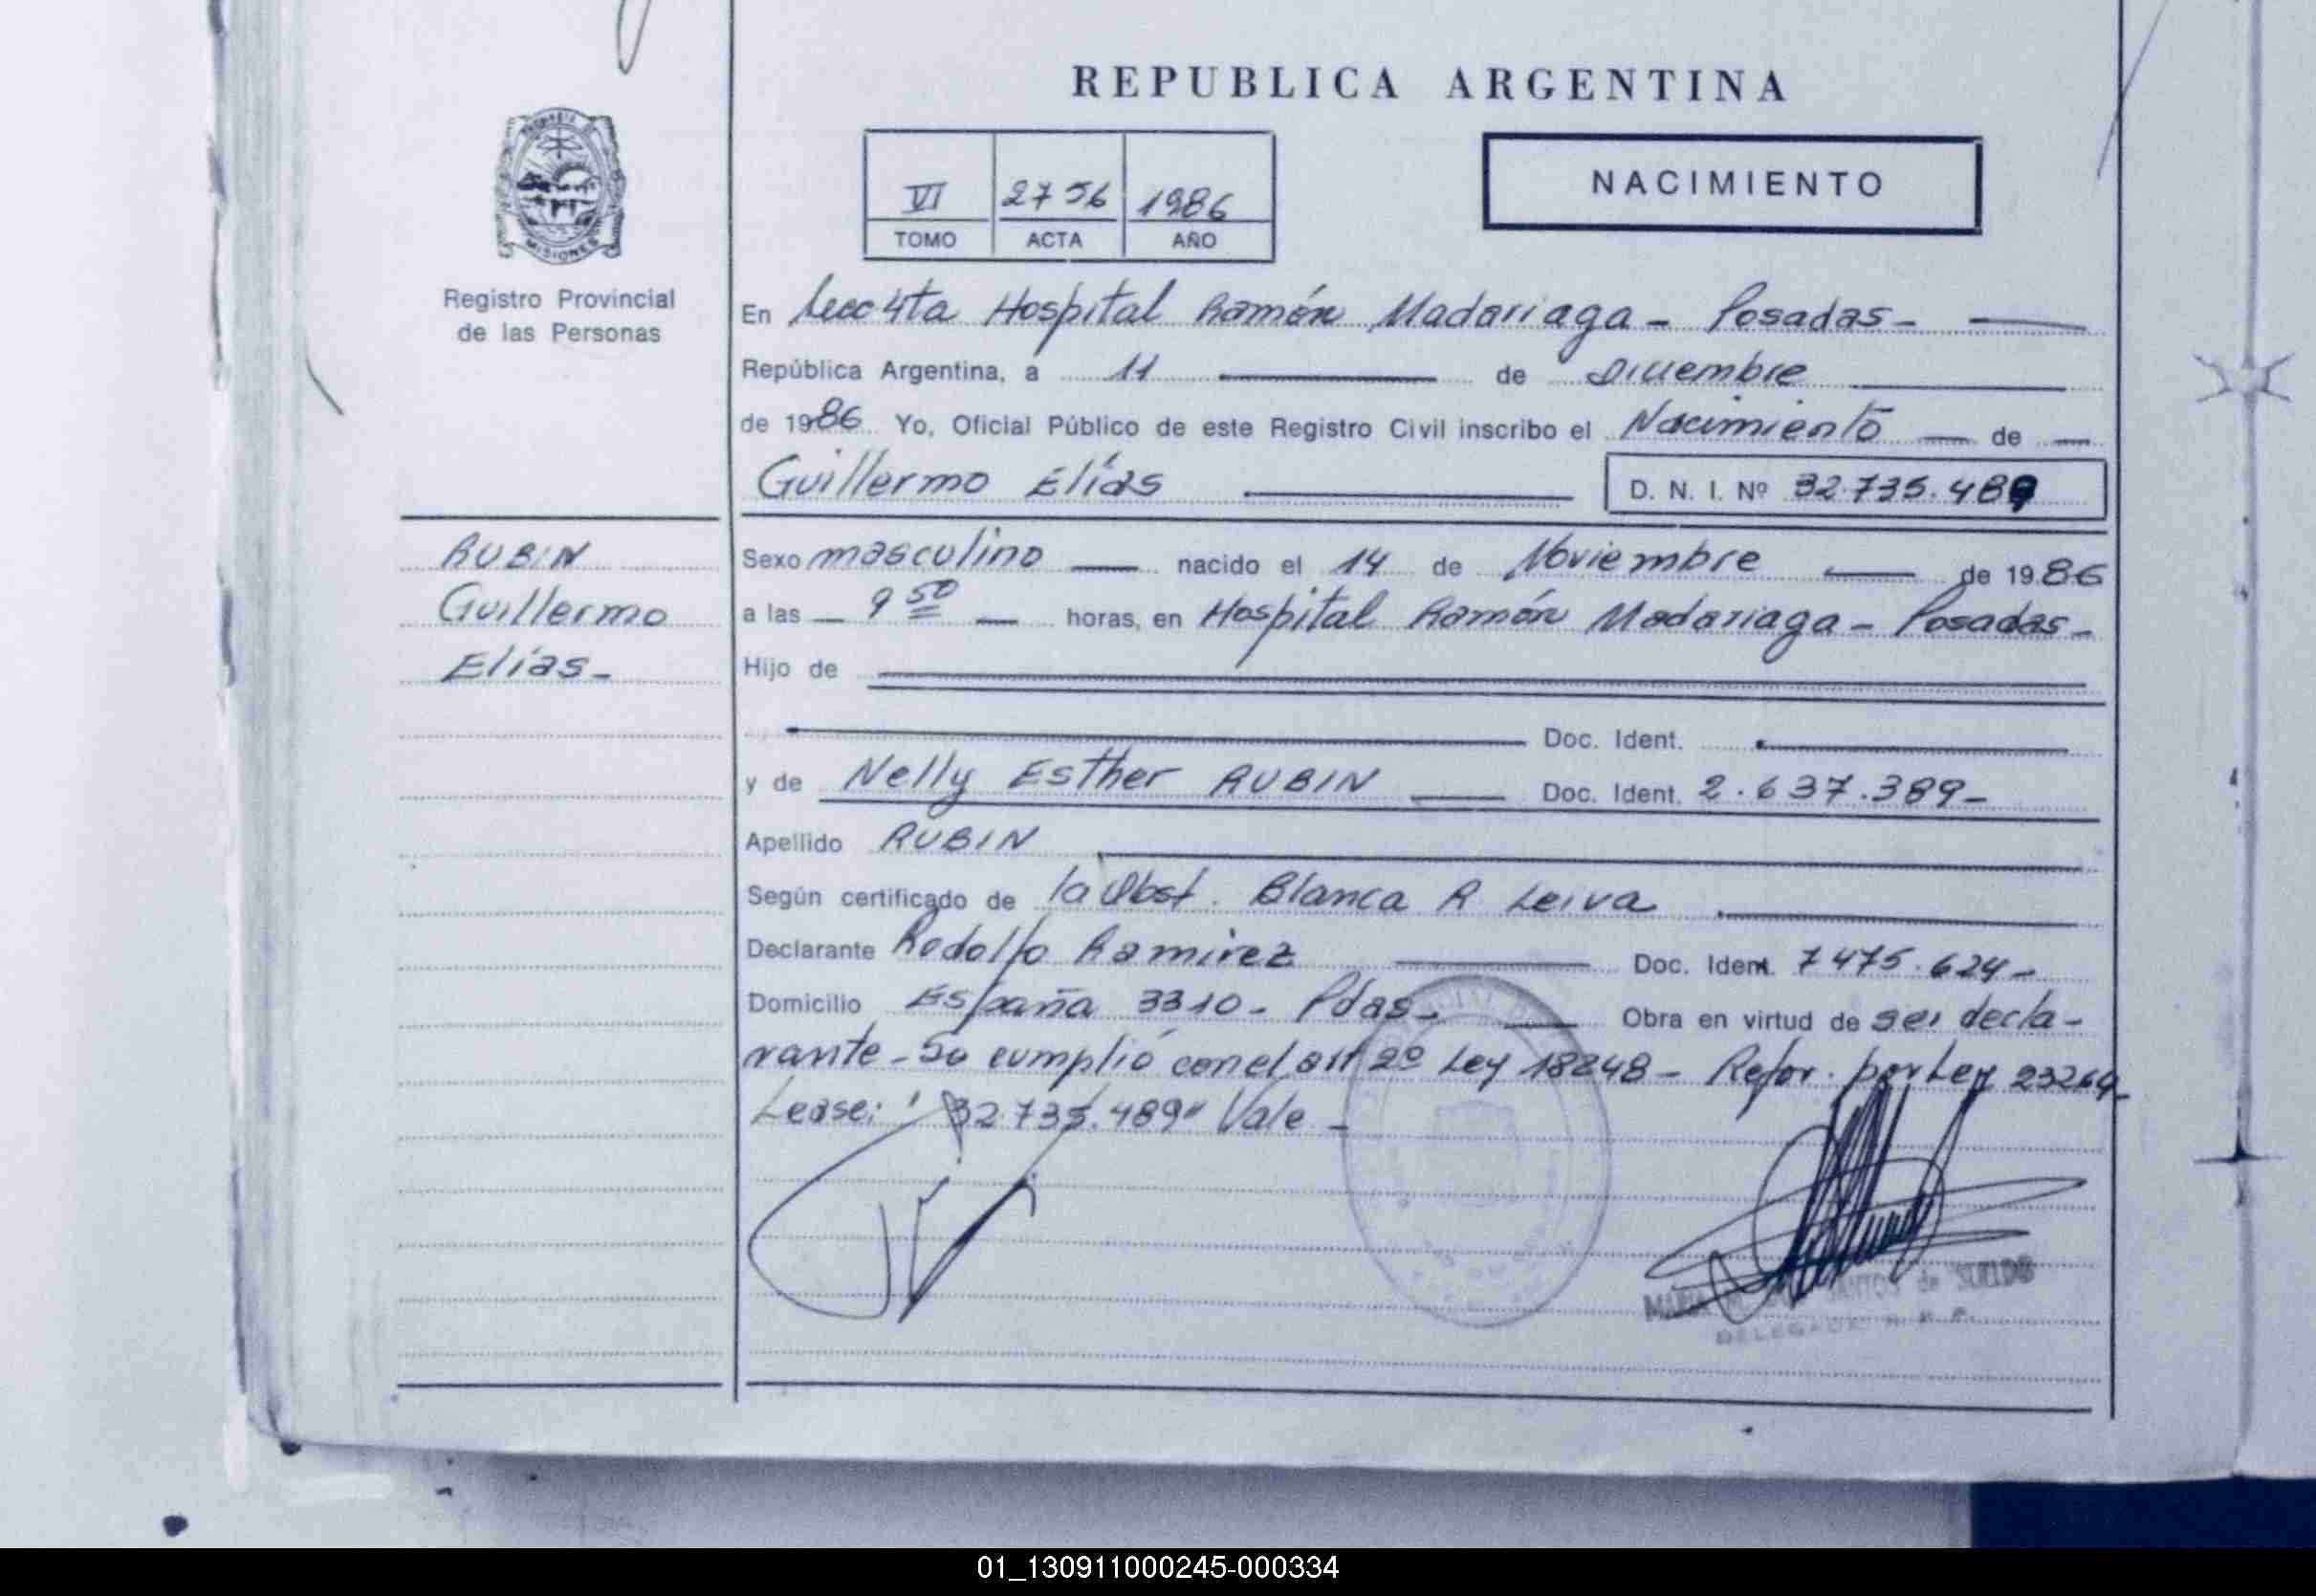 REPUBLICA ARGENTINA
MISIONES
Registro Provincial
de las Personas
VI 2756 1986
TOMO ACTA AÑO
NACIMIENTO
En Secc 4ta Hospital Ramón Madariaga - Posadas -
República Argentina, a 11 de Diciembre
de 1986 Yo, Oficial Público de este Registro Civil inscribo el Nacimiento de
Guillermo Elías D. N. I. Nº 32.735.489
RUBIN
Guillermo
Elías -
Sexo masculino nacido el 14 de Noviembre de 1986
a las 9 50 horas, en Hospital Ramón Madariaga - Posadas -
Hijo de
Doc. Ident.
y de Nelly Esther RUBIN Doc. Ident. 2.637.389 -
Apellido RUBIN
Según certificado de la Obst. Blanca R Leiva
Declarante Rodolfo Ramirez Doc. Ident. 7475.624 -
Domicilio España 3310 - Pdas - Obra en virtud de ser decla-
rante - Se cumplió con el art 2º Ley 18248 - Refor. por Ley 23264 -
Lease: "32.735.489" Vale -
MARIA SANTOS de SUELDO
DELEGADA R. P. P.
01_130911000245-000334